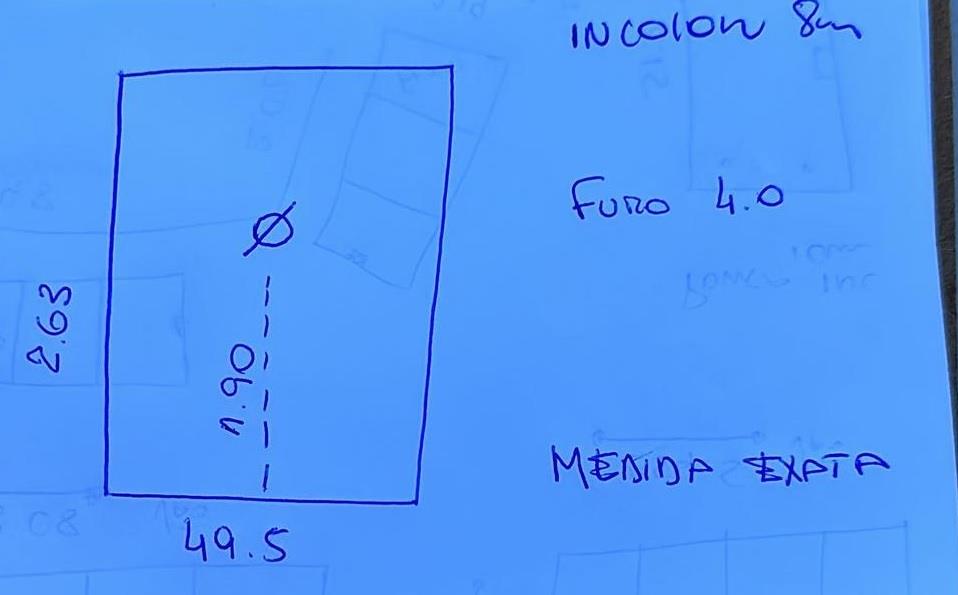 INCOLOR 8m
FURO 4.0
Ø
2.63
1.90
MEDIDA EXATA
49.5